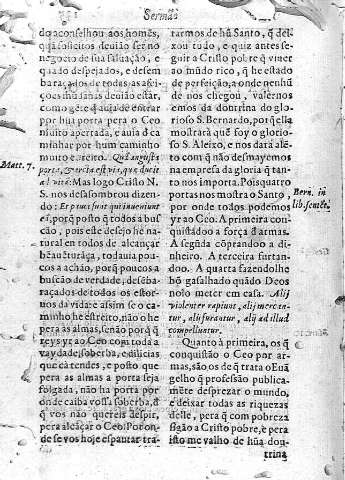 Sermão
do aconselhou aos homẽs,
quã solicitos deuião ser no
negocio de sua saluação, e
quãdo despejados, e desem
baraçados de todas as afei-
ções mũdanas deuião estar,
como gẽte q̃ auia de entrar
por hũa porta pera o Ceo
muito apertada, e auia d'ca
minhar por hum caminho
muito estreito. Quã angusta
porta, & arcta est via, quæ ducit
ad vitã. Mas logo Christo N.
S. nos desasombrou dizen
do: Et pauci sunt qui inueniunt
eã, porq̃ posto q̃ todos a bus
cão, pois este desejo he na
tural em todos de alcançar
bẽauẽturãça, todauia pou
cos a achão, porq̃ poucos a
buscão de verdade, desẽba
raçados de todos os estor-
uos da vida: e assim se o ca-
minho he estreito, não o he
pera as almas, senão porq̃ q̃
reys yr ao Ceo com toda a
vaydade, soberba, e dilicias
que cá tendes, e posto que
pera as almas a porta seja
folgada, não ha porta por
onde caiba vossa soberba, &
q̃ vos não quereis despir,
pera alcãçar o Ceo. Por on-
de se vos hoje espantar tra-
Matt. 7.
tarmos de hũ Santo, q̃ dei-
xou tudo, e quiz antes se-
guir a Christo pobre q̃ viuer
ao mũdo rico, q̃ he estado
de perfeição, a onde nenhũ
de nos chegou, valernos
emos da doutrina do glo-
rioso S. Bernardo, por q̃ ella
mostrará quẽ foy o glorio-
so S. Aleixo, e nos dará alẽ-
to com q̃ não desmayemos
na empresa da gloria q̃ tan-
to nos importa. Pois quatro
portas nos mostra o Santo,
por onde todos podemos
yr ao Ceo. A primeira con-
quistãdoo a força d'armas.
A segũda cõprandoo a di-
nheiro. A terceira furtan-
doo. A quarta fazendolhe
bõ gasalhado quãdo Deos
nolo meter em casa. Alij
violenter rapiunt, alij mercan-
tur, alij furantur, alij ad illud
compelluntur.
Bern. in
lib. sentẽ.
Quanto à primeira, os q̃
conquistão o Ceo por ar-
mas, são os de q̃ trata o Euã
gelho q̃ professão publica-
mẽte desprezar o mundo,
e deixar todas as riquezas
delle, pera q̃ com pobreza
sigão a Christo pobre, e pera
isto me valho de hũa dou-
trina